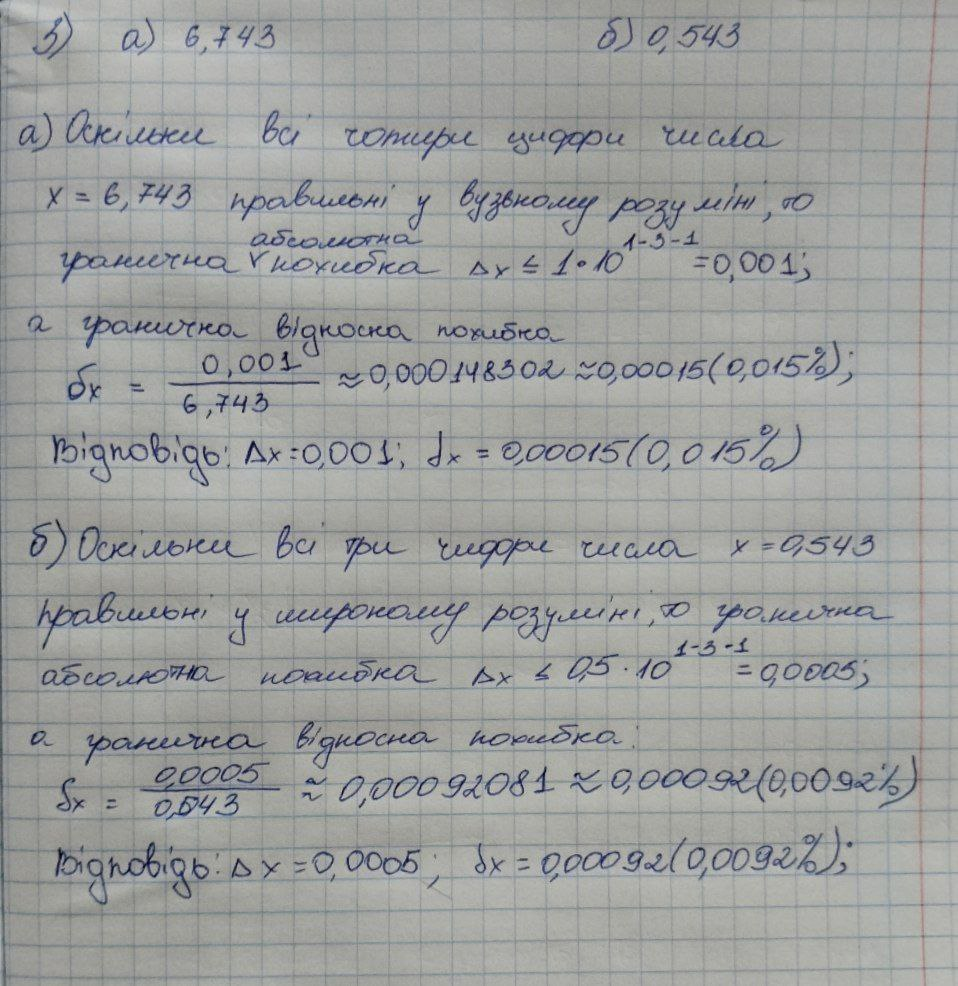 3) а) 6,743 б) 0,543
а) Оскільки всі чотири цифри числа
x = 6,743 правильні у вузькому розумінні, то
гранична абсолютна похибка Δx ≤ 1·10^{1-3-1} = 0,001;
а гранична відносна похибка
δx = 0,001/6,743 ≈ 0,000148302 ≈ 0,00015(0,015%);
Відповідь: Δx = 0,001; δx = 0,00015(0,015%)
б) Оскільки всі три цифри числа x = 0,543
правильні у широкому розумінні, то гранична
абсолютна похибка Δx ≤ 0,5·10^{1-3-1} = 0,0005;
а гранична відносна похибка:
δx = 0,0005/0,543 ≈ 0,00092081 ≈ 0,00092(0,0092%)
Відповідь: Δx = 0,0005; δx = 0,00092(0,0092%);